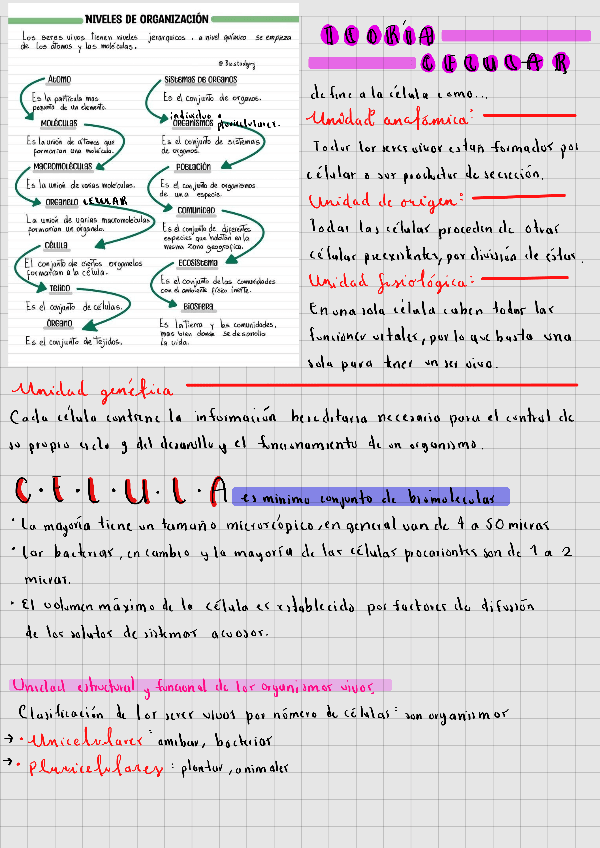 NIVELES DE ORGANIZACIÓN
Los seres vivos tienen niveles jerarquicos, a nivel químico se empieza
de los átomos y las moléculas.
ÁTOMO
Es la partícula mas
pequeña de un elemento.
MOLÉCULAS
Es la unión de átomos que
formarían una molécula.
MACROMOLÉCULAS
Es la unión de varias moléculas.
ORGANELO CELULAR
La unión de varias macromoléculas
formarían un organelo.
CÉLULA
El conjunto de ciertos organelos
formarían a la célula.
TEJIDO
Es el conjunto de células.
ÓRGANO
Es el conjunto de tejidos.
SISTEMAS DE ÓRGANOS
Es el conjunto de órganos.
individuo o
ORGANISMOS pluricelulares.
Es el conjunto de sistemas
de órganos.
POBLACIÓN
Es el conjunto de organismos
de una especie.
COMUNIDAD
Es el conjunto de diferentes
especies que habitan en la
misma zona geográfica.
ECOSISTEMA
Es el conjunto de las comunidades
con el ambiente físico inerte.
BIOSFERA
Es la tierra y las comunidades,
mas bien donde se desarrolla
la vida.
TEORÍA
CELULAR
define a la célula como...
Unidad anatómica:
Todos los seres vivos están formados por
células o sus productos de secreción.
Unidad de origen:
Todas las células proceden de otras
células preexistentes, por división de éstas.
Unidad fisiológica:
En una sola célula caben todas las
funciones vitales, por lo que basta una
sola para tener un ser vivo.
Unidad genética
Cada célula contiene la información hereditaria necesaria para el control de
su propio ciclo y del desarrollo y el funcionamiento de un organismo.
C·E·L·U·L·A es mínimo conjunto de biomoleculas
· La mayoría tiene un tamaño microscópico, en general van de 4 a 50 micras
· Las bacterias, en cambio y la mayoría de las células procariontes son de 1 a 2
micras.
· El volumen máximo de la célula es establecido por factores de difusión
de los solutos de sistemas acuosos.
Unidad estructural y funcional de los organismos vivos
Clasificación de los seres vivos por número de células: son organismos
→ · Unicelulares: amibas, bacterias
→ · Pluricelulares: plantas, animales